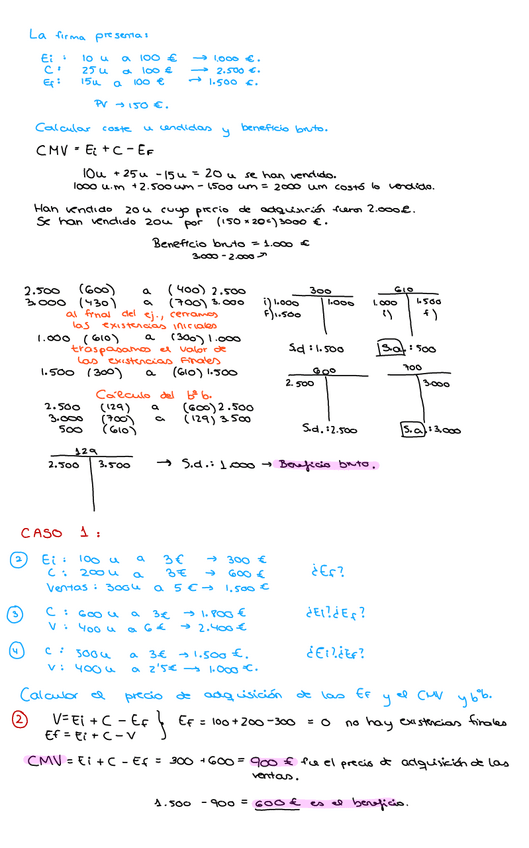 La firma presenta:
Ei : 10 u a 100 € → 1.000 €.
C : 25 u a 100 € → 2.500 €.
Ef : 15u a 100 € → 1.500 €.
PV → 150 €.
Calcular coste u vendidas y beneficio bruto.
CMV = Ei + C - EF
10u + 25u - 15u = 20 u se han vendido.
1000 u.m + 2.500 um - 1500 um = 2000 um costó lo vendido.
Han vendido 20u cuyo precio de adquisición fueron 2.000€.
Se han vendido 20u por (150 × 20€) 3000 €.
Beneficio bruto = 1.000 €
3.000 - 2.000
2.500 (600) a (400) 2.500
3.000 (430) a (700) 3.000
al final del ej., cerramos
las existencias iniciales
1.000 (610) a (300) 1.000
traspasamos el valor de
las existencias finales
1.500 (300) a (610) 1.500
Cálculo del bº b.
2.500 (129) a (600) 2.500
3.000 (700) a (129) 3.500
500 (610)
300
i) 1.000 1.000
f) 1.500
Sd : 1.500
610
1.000 1.500
i) f)
S.a. : 500
600
2.500
S.d. : 2.500
700
3.000
S.a. : 3.000
129
2.500 3.500 → S.d.: 1.000 → Beneficio bruto.
CASO 1 :
2 Ei : 100 u a 3€ → 300 €
C : 200 u a 3€ → 600 € ¿Ef?
Ventas : 300u a 5 € → 1.500 €
3 C : 600 u a 3€ → 1.800 € ¿Ei? ¿Ef?
V : 400 u a 6€ → 2.400 €
4 C : 500u a 3€ → 1.500 €. ¿Ei? ¿Ef?
V : 400 u a 2'5€ → 1.000 €.
Calcular el precio de adquisición de las Ef y el CMV y bºb.
2 V = Ei + C - Ef } Ef = 100 + 200 - 300 = 0 no hay existencias finales
Ef = Ei + C - V
CMV = Ei + C - Ef = 300 + 600 = 900 € fue el precio de adquisición de las
ventas.
1.500 - 900 = 600 € es el beneficio.